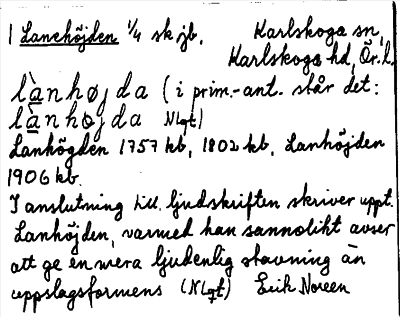 1 Lanehöjden 1/4 sk jb. Karlskoga sn,
Karlskoga hd, Ör. l.
lànhøjda (i prim.-ant. står det:
lànhøjda NLgt)
Lanhögden 1757 kb, 1802 kb, Lanhöjden
1906 kb.
I anslutning till ljudskriften skriver uppt.
Lanhöjden, varmed han sannolikt avser
att ge en mera ljudenlig stavning än
uppslagsformens (NLgt) Erik Noreen